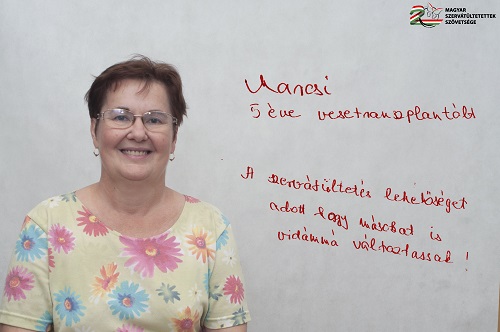 MAGYAR
SZERVÁTÜLTETETTEK
SZÖVETSÉGE
Marcsi
5 éve vesetranszplantált
A szervátültetés lehetőséget
adott hogy másokat is
vidámmá változtassak !